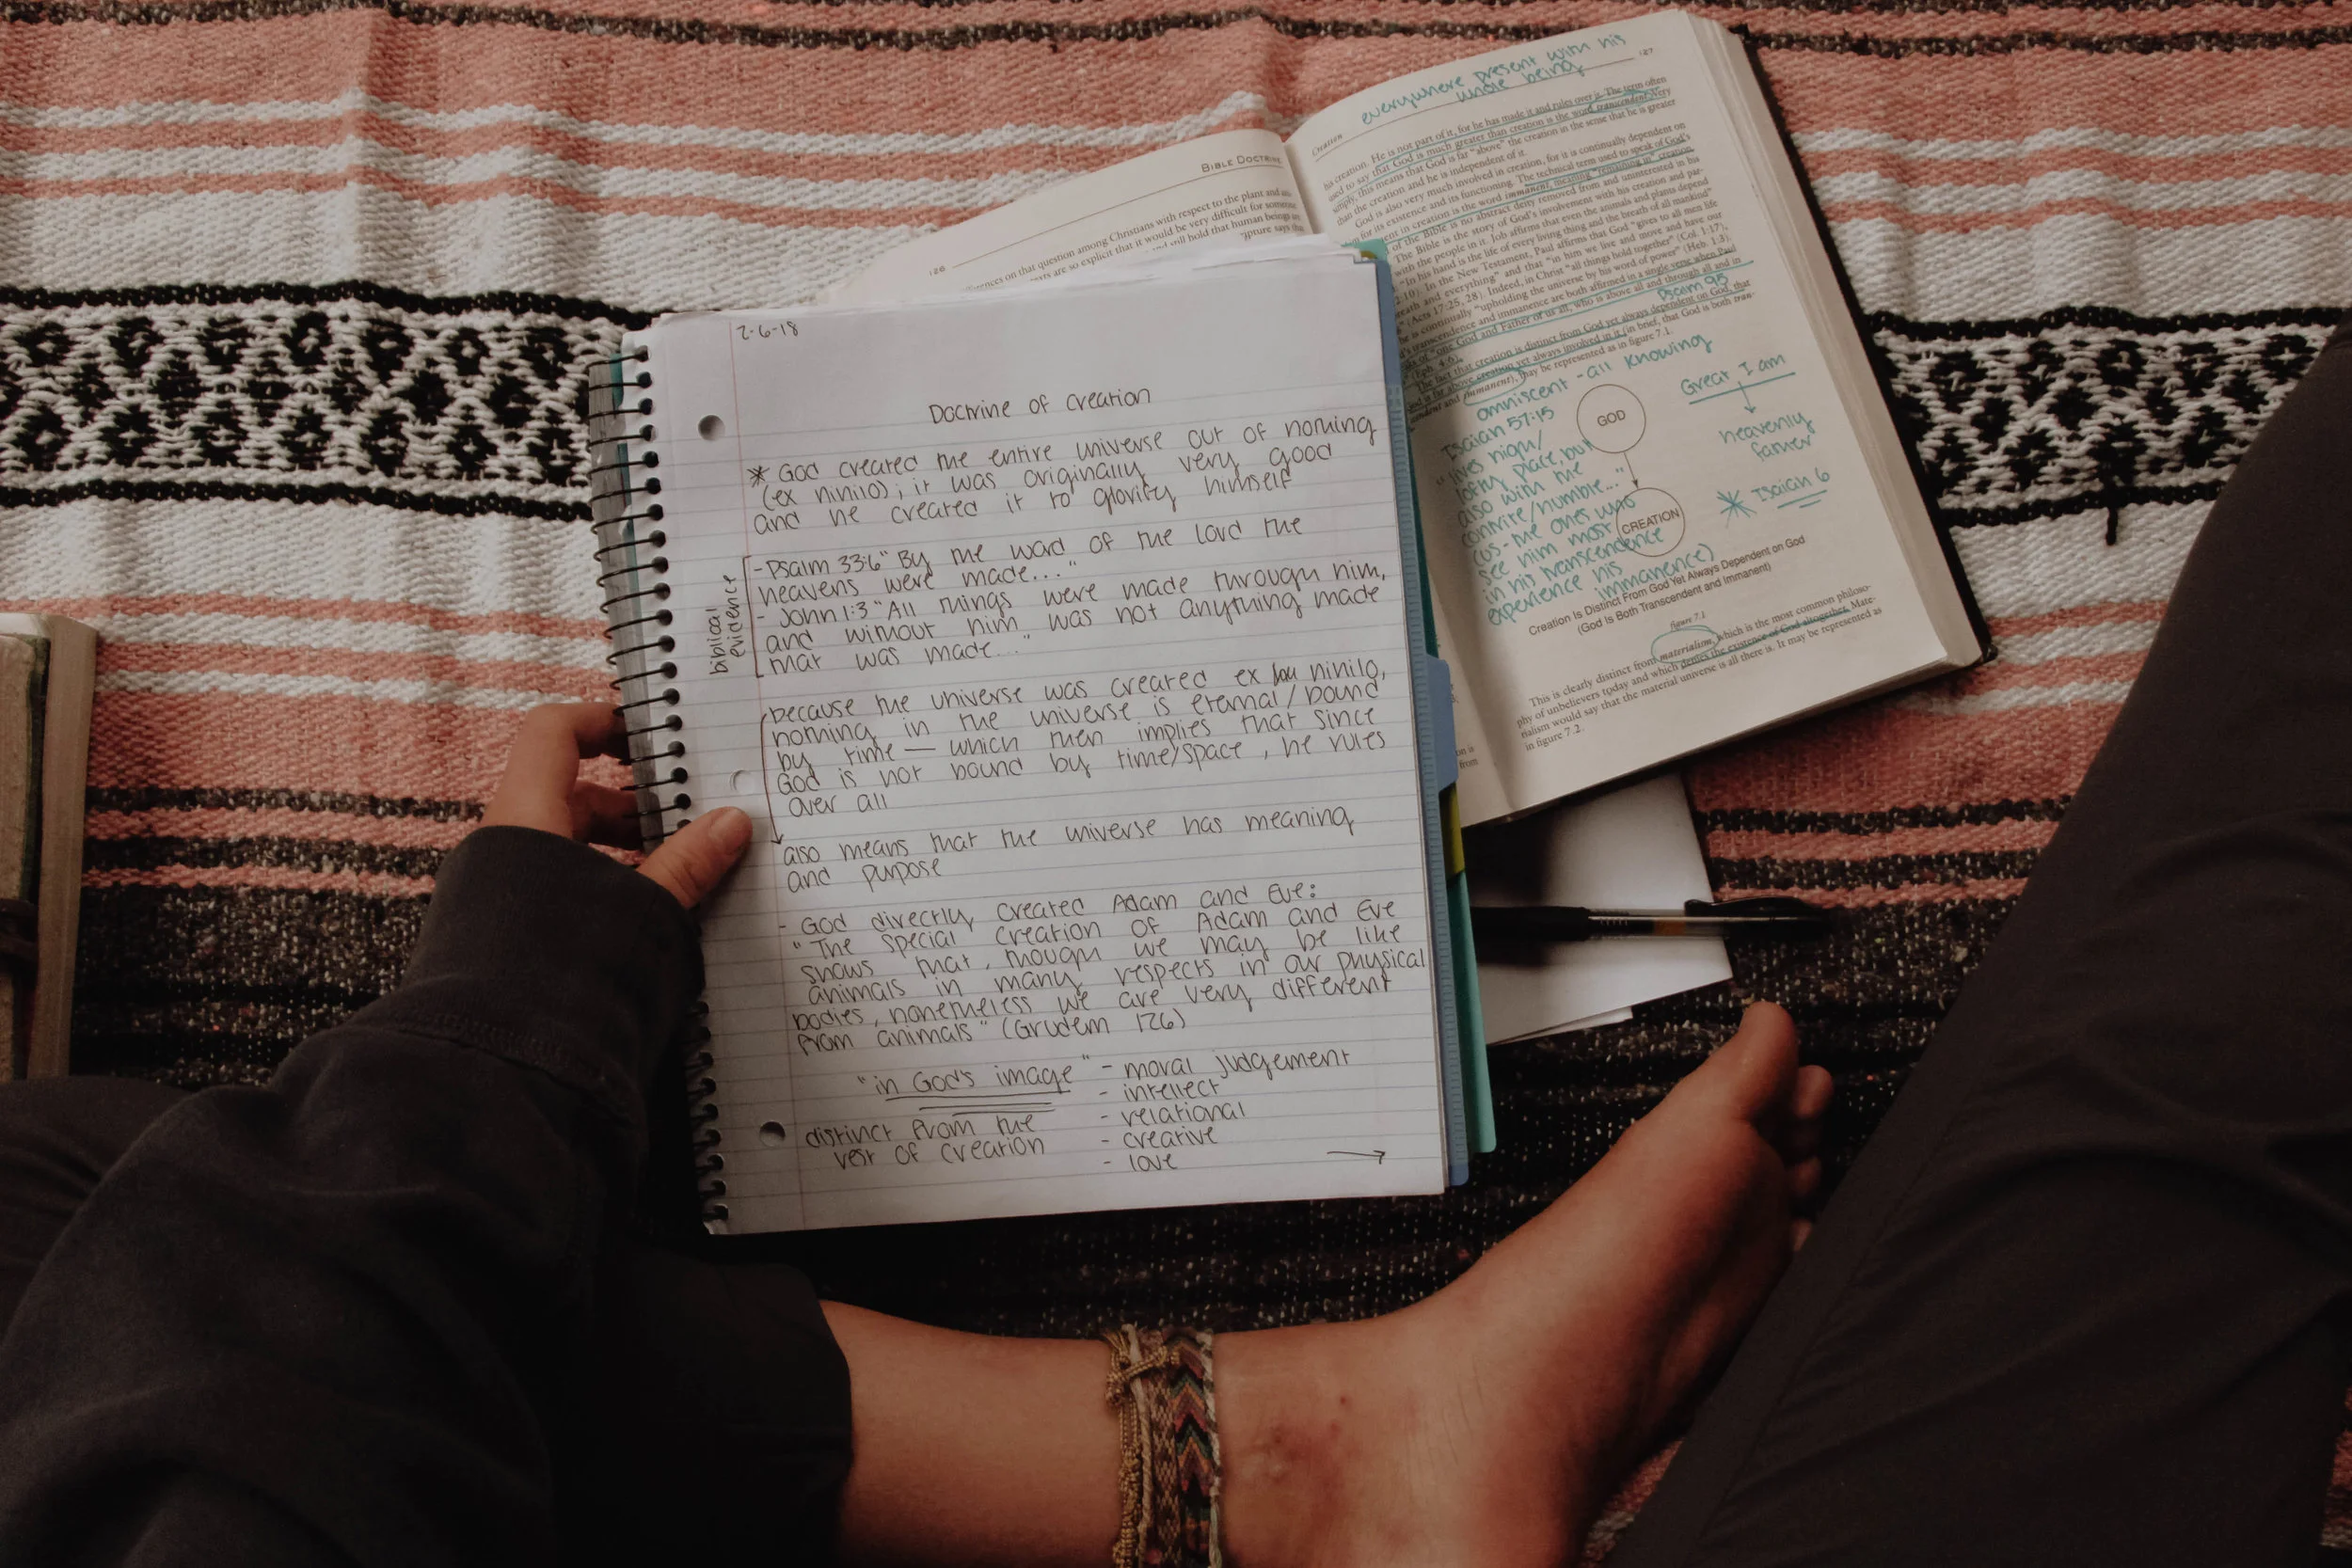 2-6-18
Doctrine of Creation
* God created the entire universe out of nothing
(ex nihilo); it was originally very good
and he created it to glorify himself
biblical
evidence
- Psalm 33:6 "By the word of the Lord the
heavens were made..."
- John 1:3 "All things were made through him,
and without him was not anything made
that was made..."
because the universe was created ex nihilo,
nothing in the universe is eternal/bound
by time — which then implies that since
God is not bound by time/space, he rules
over all
also means that the universe has meaning
and purpose
- God directly created Adam and Eve:
"The special creation of Adam and Eve
shows that, though we may be like
animals in many respects in our physical
bodies, nonetheless we are very different
from animals" (Grudem 126)
"in God's image" - moral judgement
- intellect
distinct from the - relational
rest of creation - creative
- love
BIBLE DOCTRINE
126
ences on that question among Christians with respect to the plant and
are so explicit that it would be very difficult for someone
still hold that human beings
says that
everywhere present with his
whole being
127
Creation
his creation. He is not part of it, for he has made it and rules over it. The term often
used to say that God is much greater than creation is the word transcendent. Very
simply, this means that God is far "above" the creation in the sense that he is greater
than the creation and he is independent of it.
God is also very much involved in creation, for it is continually dependent on
for its existence and its functioning. The technical term used to speak of God's
in creation is the word immanent, meaning "remaining in" creation.
of the Bible is no abstract deity removed from and uninterested in his
The Bible is the story of God's involvement with his creation and par-
with the people in it. Job affirms that even the animals and plants depend
"In his hand is the life of every living thing and the breath of all mankind"
In the New Testament, Paul affirms that God "gives to all men life
and everything" and that "in him we live and move and have our
(Acts 17:25, 28). Indeed, in Christ "all things hold together" (Col. 1:17),
is continually "upholding the universe by his word of power" (Heb. 1:3).
transcendence and immanence are both affirmed in a single verse when Paul
"one God and Father of us all, who is above all and through all and in
(Eph. 4:6).
Psalm 95
The fact that creation is distinct from God yet always dependent on God, that
God is far above creation yet always involved in it (in brief, that God is both tran-
scendent and immanent), may be represented as in figure 7.1.
omniscient - all knowing
Great I am
heavenly
father
* Isaiah 6
Isaiah 57:15
"lives high/
lofty place, but
also with the
contrite/humble..."
(us - the ones who
see him most
in his transcendence
experience his
immanence)
GOD
CREATION
Creation Is Distinct From God Yet Always Dependent on God
(God Is Both Transcendent and Immanent)
figure 7.1
This is clearly distinct from materialism, which is the most common philoso-
phy of unbelievers today and which denies the existence of God altogether. Mate-
rialism would say that the material universe is all there is. It may be represented as
in figure 7.2.
from